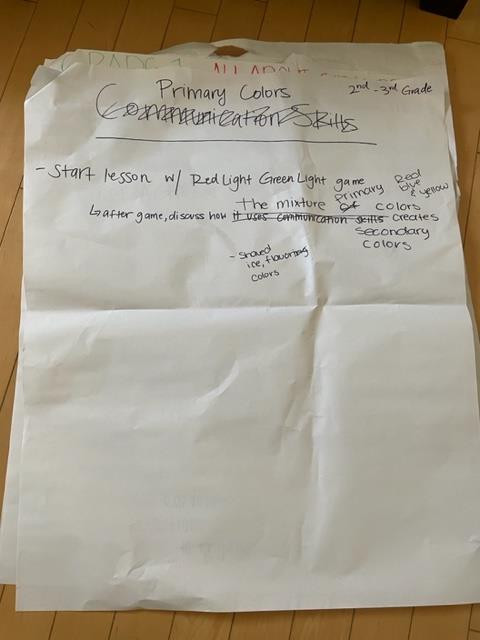 GRADE 1 ALL ABOUT
Primary Colors
2nd - 3rd Grade
Communication Skills
- Start lesson w/ Red Light Green Light game
Red
blue
& yellow
primary
The mixture of colors
↳ after game, discuss how it uses communication skills creates
secondary
colors
- shaved
ice, flavoring
colors